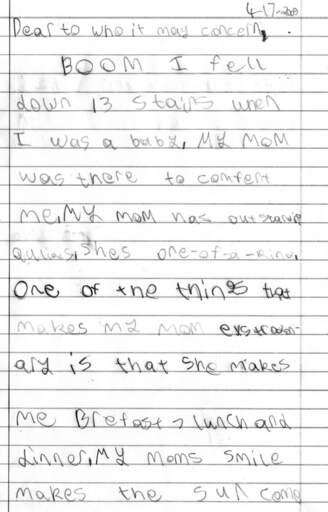 4-17-
Dear to who it may concern,
BOOM I fell
down 13 stairs when
I was a baby, My Mom
was there to comfert
me, My mom has
shes one-of-a-kind,
One of the things that
makes my mom exstraden-
ary is that she makes
me Brefast, lunch and
dinner, My moms smile
makes the sun come